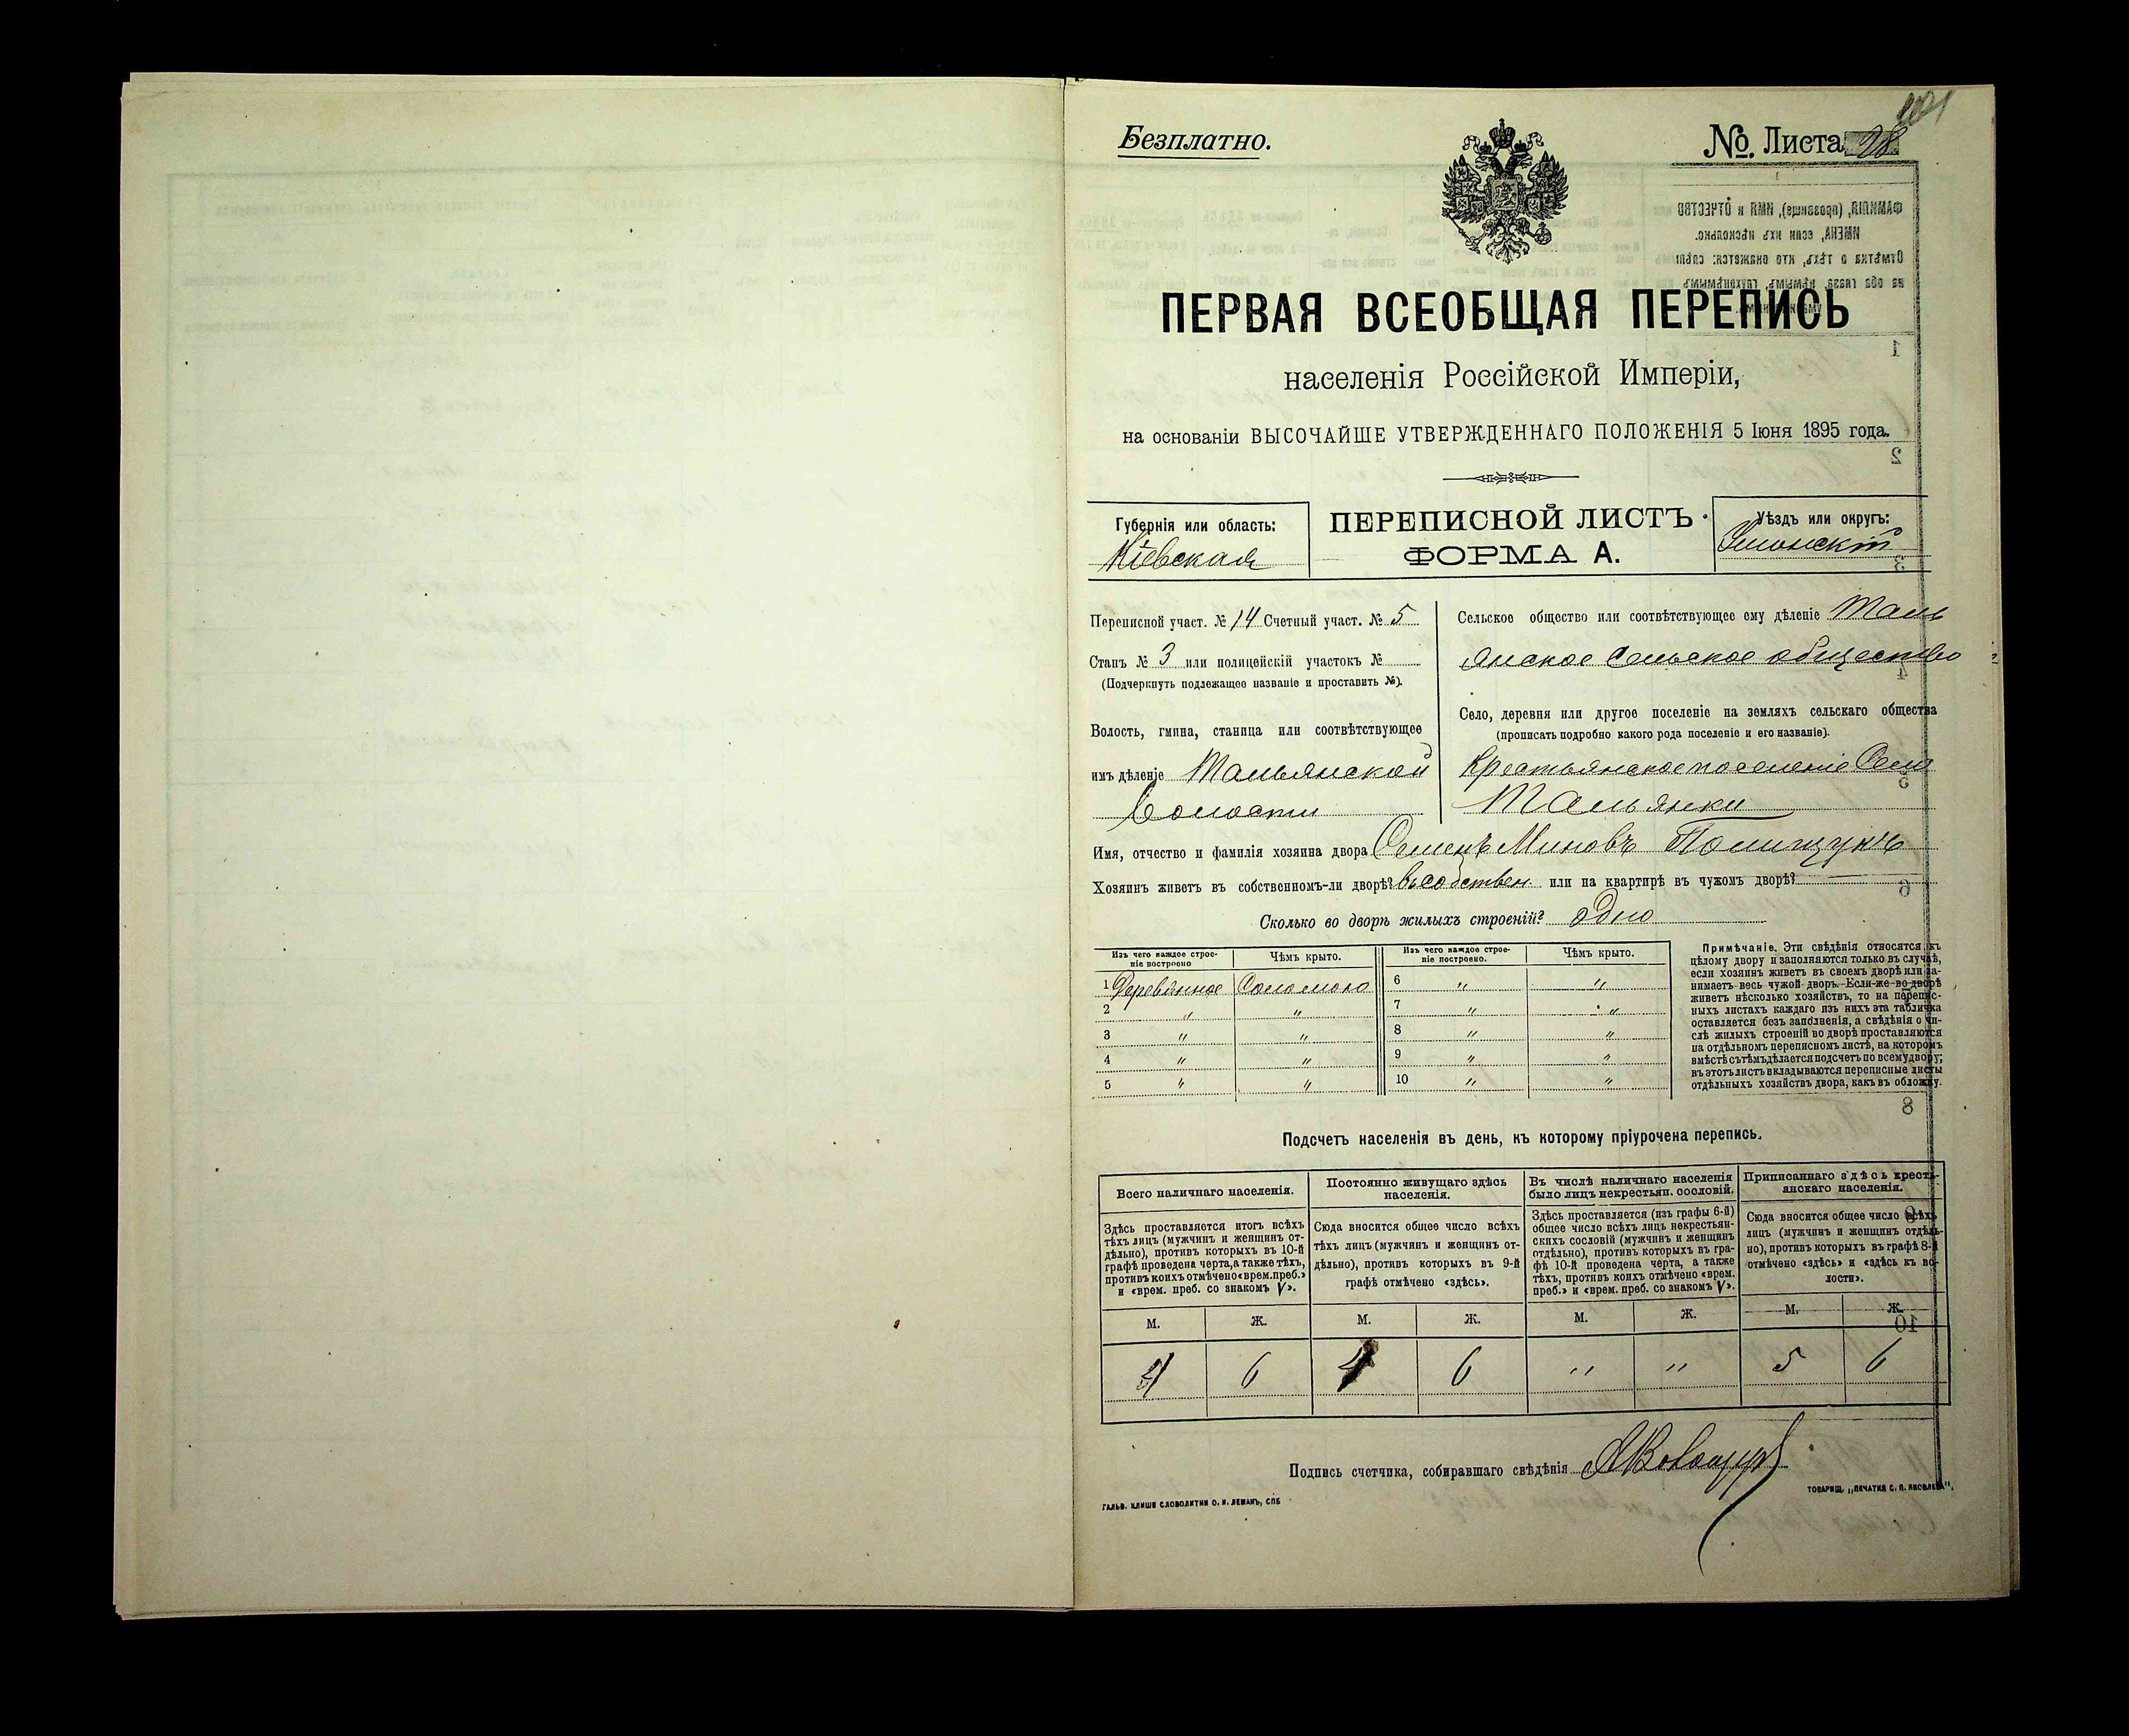 Безплатно.
№. Листа 28
ПЕРВАЯ ВСЕОБЩАЯ ПЕРЕПИСЬ
населенія Россійской Имперіи,
на основаніи ВЫСОЧАЙШЕ УТВЕРЖДЕННАГО ПОЛОЖЕНІЯ 5 Іюня 1895 года.
Губернія или область:
Кіевская
ПЕРЕПИСНОЙ ЛИСТЪ
ФОРМА А.
Уѣздъ или округъ:
Уманскій
Переписной участ. № 14 Счетный участ. № 5
Станъ № 3 или полицейскій участокъ №
(Подчеркнуть подлежащее названіе и проставить №).
Волость, гмина, станица или соотвѣтствующее
имъ дѣленіе Тальянской
Волости
Сельское общество или соотвѣтствующее ему дѣленіе Таль
янское Сельское общество
Село, деревня или другое поселеніе на земляхъ сельскаго общества
(прописать подробно какого рода поселеніе и его названіе).
Крестьянское поселеніе Село
Тальянки
Имя, отчество и фамилія хозяина двора Семенъ Миновъ Полищукъ
Хозяинъ живетъ въ собственномъ-ли дворѣ? въ собствен. или на квартирѣ въ чужомъ дворѣ?
Сколько во дворѣ жилыхъ строеній? одно
Изъ чего каждое строе-
ніе построено
Чѣмъ крыто.
Изъ чего каждое строе-
ніе построено.
Чѣмъ крыто.
1 Деревянное Соломою 6 " "
2 " " 7 " "
3 " " 8 " "
4 " " 9 " "
5 " " 10 " "
Примѣчаніе. Эти свѣдѣнія относятся къ
цѣлому двору и заполняются только въ случаѣ,
если хозяинъ живетъ въ своемъ дворѣ или за-
нимаетъ весь чужой дворъ. Если-же во дворѣ
живетъ нѣсколько хозяйствъ, то на перепис-
ныхъ листахъ каждаго изъ нихъ эта табличка
оставляется безъ заполненія, а свѣдѣнія о чи-
слѣ жилыхъ строеній во дворѣ проставляются
на отдѣльномъ переписномъ листѣ, на которомъ
вмѣстѣ съ тѣмъ дѣлается подсчетъ по всему двору;
въ этотъ листъ вкладываются переписные листы
отдѣльныхъ хозяйствъ двора, какъ въ обложку.
Подсчетъ населенія въ день, къ которому пріурочена перепись.
Всего наличнаго населенія.
Здѣсь проставляется итогъ всѣхъ
тѣхъ лицъ (мужчинъ и женщинъ от-
дѣльно), противъ которыхъ въ 10-й
графѣ проведена черта, а также тѣхъ,
противъ коихъ отмѣчено «врем. преб.»
и «врем. преб. со знакомъ V».
Постоянно живущаго здѣсь
населенія.
Сюда вносится общее число всѣхъ
тѣхъ лицъ (мужчинъ и женщинъ от-
дѣльно), противъ которыхъ въ 9-й
графѣ отмѣчено «здѣсь».
Въ числѣ наличнаго населенія
было лицъ некрестьян. сословій.
Здѣсь проставляется (изъ графы 6-й)
общее число всѣхъ лицъ некрестьян-
скихъ сословій (мужчинъ и женщинъ
отдѣльно), противъ которыхъ въ гра-
фѣ 10-й проведена черта, а также
тѣхъ, противъ коихъ отмѣчено «врем.
преб.» и «врем. преб. со знакомъ V».
Приписаннаго здѣсь кресть-
янскаго населенія.
Сюда вносится общее число всѣхъ
лицъ (мужчинъ и женщинъ отдѣль-
но), противъ которыхъ въ графѣ 8-й
отмѣчено «здѣсь» и «здѣсь къ во-
лости».
М. Ж. М. Ж. М. Ж. М. Ж.
4 6 4 6 " " 5 6
Подпись счетчика, собиравшаго свѣдѣнія
ГАЛЬВ. КЛИШЕ СЛОВОЛИТНИ О. И. ЛЕМАНЪ, СПБ
ТОВАРИЩ. „ПЕЧАТНЯ С. П. ЯКОВЛЕВА“.